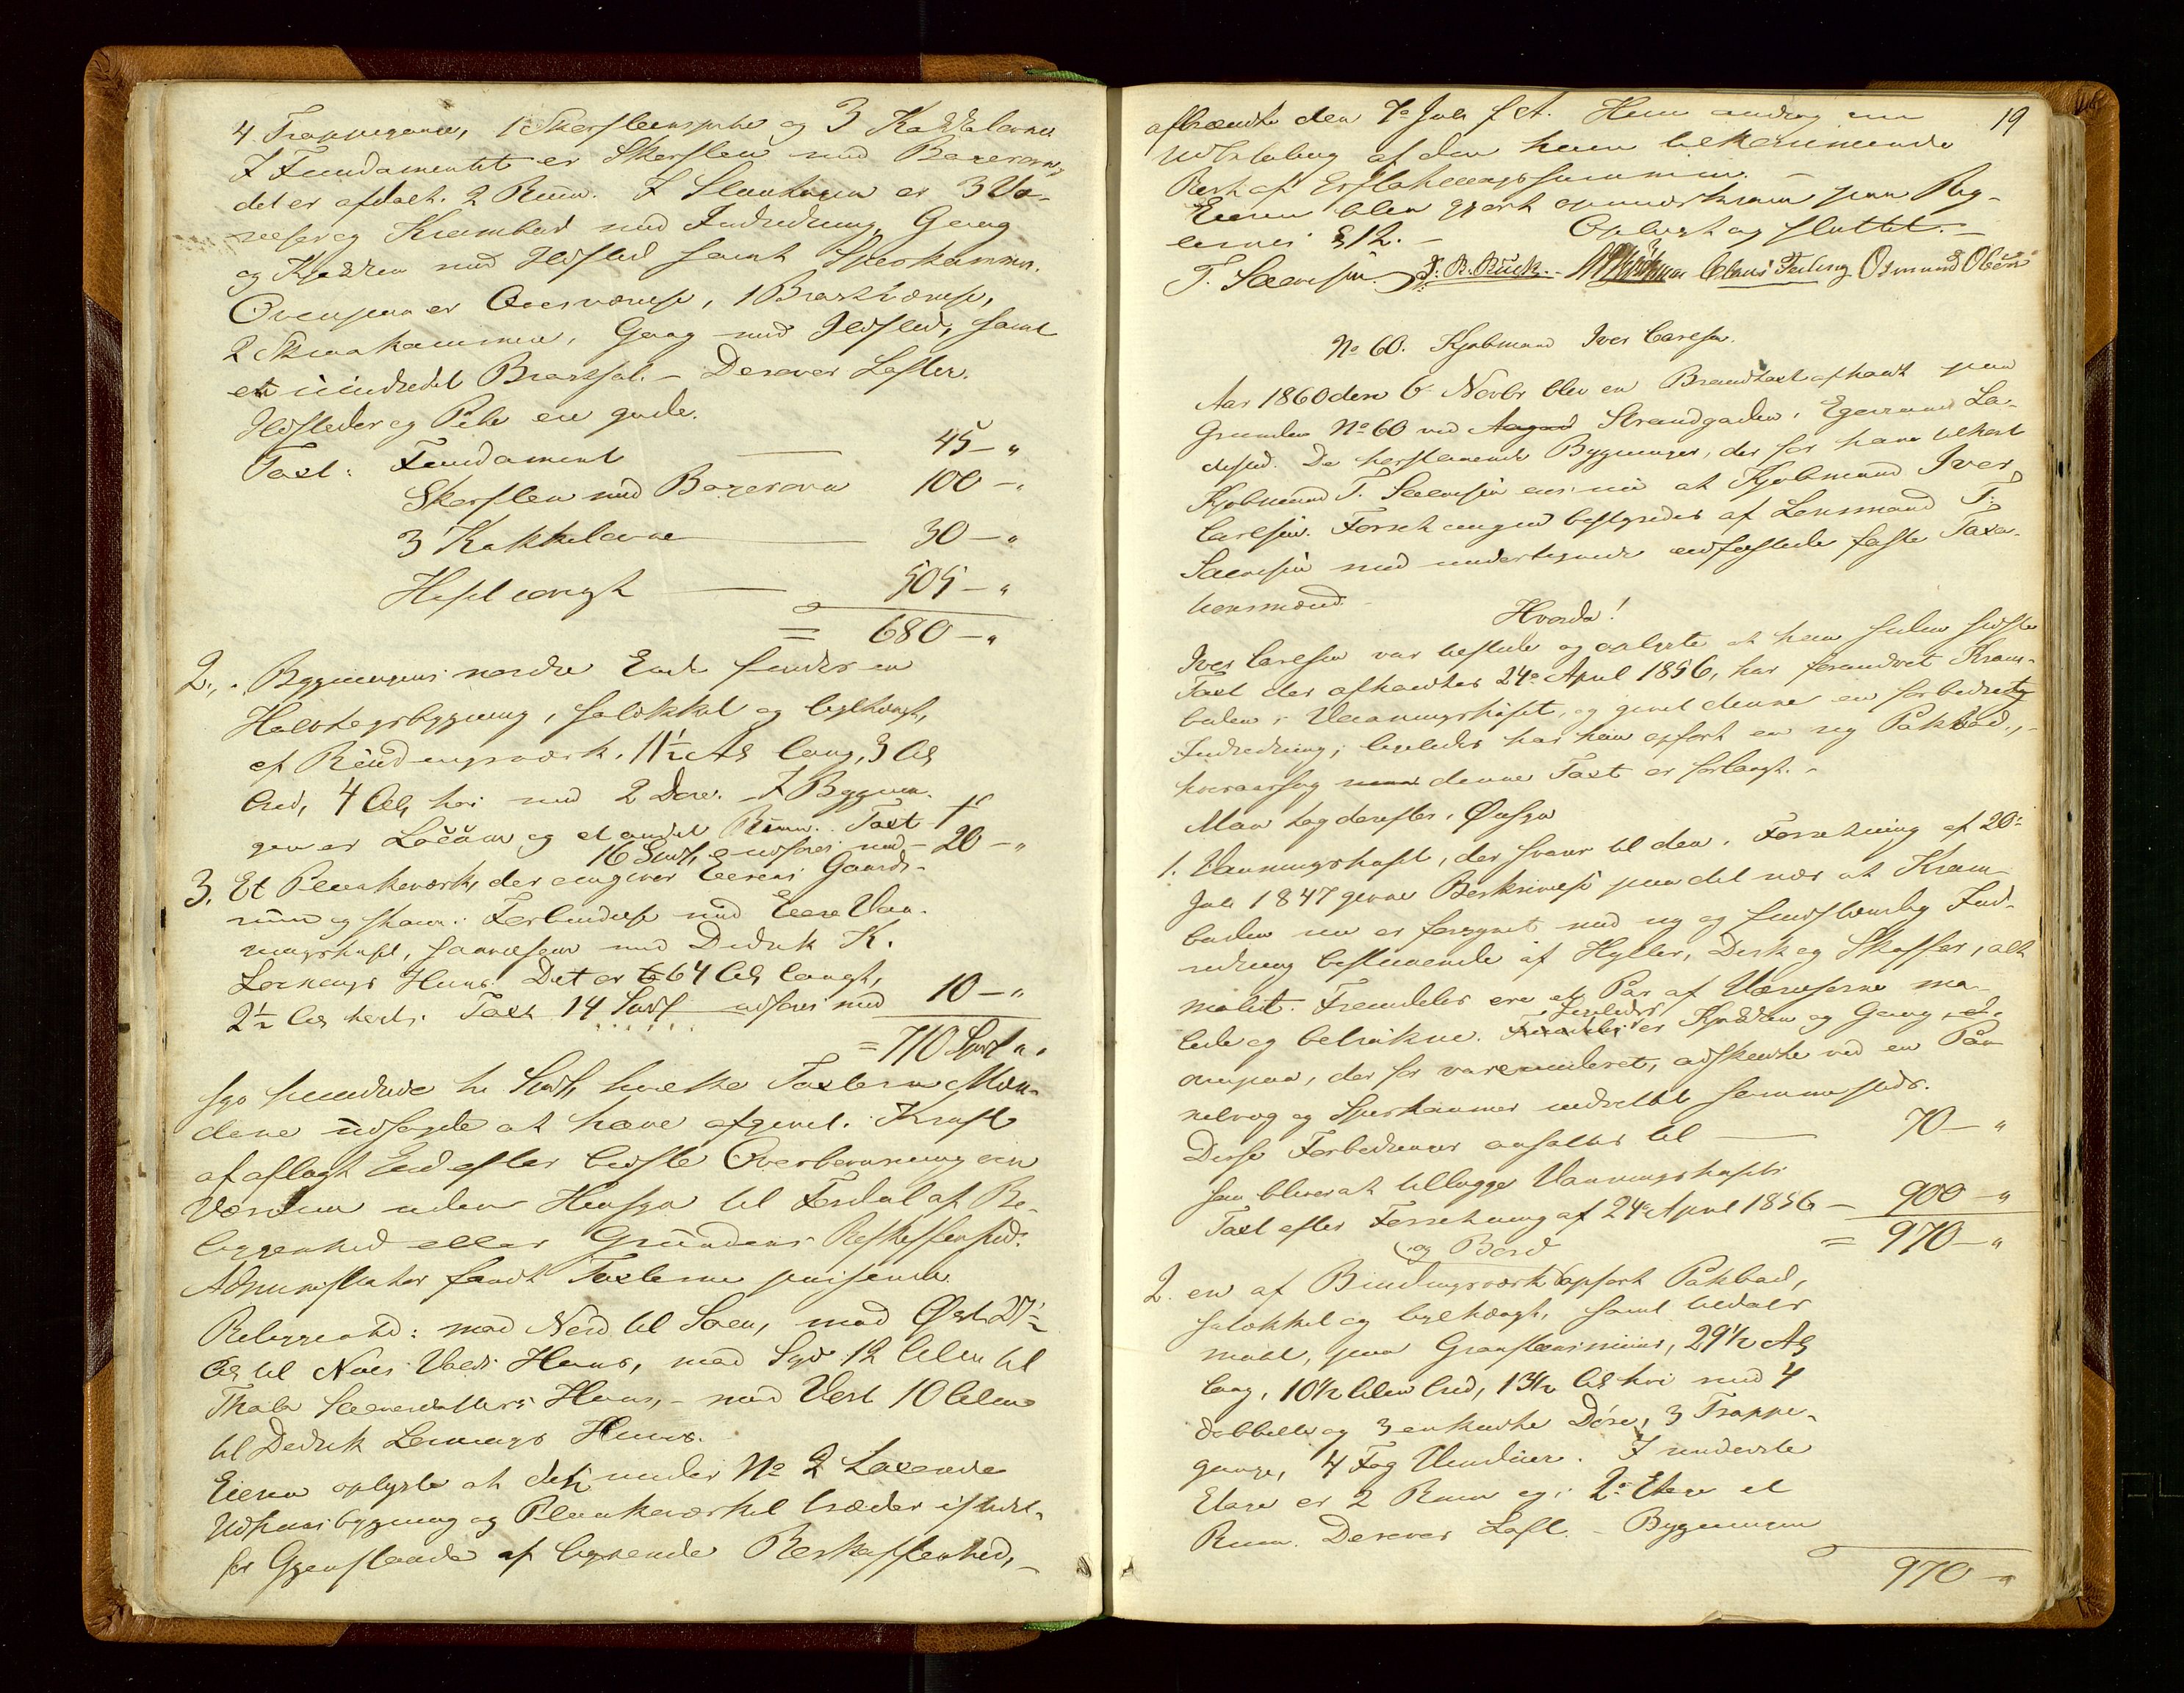 4 Trappegange, 1 Skorsteenspibe og 3 Kakkelovne
I Fundamentet er Skorsten med Bagerovn,
det er afdelt i 2 Rum. I Stueetagen er 3 Væ-
relser og Krambod med Indredning, Gang
og Kjøkken med Ildsted samt Spiskammer.
Ovenpaa er Qvistværelse, 1 Brøstværelse,
2 Skraakammere, Gang med Ildsted, samt
et uindredet Brøstsal. - Derover Lofter.
Ildsteder og Pibe ere gode.
Taxt: Fundament — 45 - "
Skorsten med Bagerovn 100 - "
3 Kakkelovne — 30 - "
Huset iøvrigt — 505 - "
= 680 - "
2., i Bygningens nordre Ende findes en
Halvtagsbygning, halvtækket og teglhængt,
af Bindingsværk, 11½ Al lang, 3 Al
bred, 4 Al høi med 2 Døre. I Bygnin-
gen er Locum og et andet Rum. Taxt
16 Spd, udføres med - 20 - "
3. Et Plankeværk, der omgiver Eierens Gaards-
rum og staar i Forbindelse med Eiere Vaa-
ningshuset, saavelsom med Didrik K.
Lornengs Huus. Det er 64 Al langt,
2½ Al høit. Taxt 14 Spd udføres med 10 - "
= 710 Spd " "
syv hundrede ti Spd, hvilke Taxter Mæn-
dene udsagde at have afgivet i Kraft
af aflagt Eed efter bedste Overbeviisning om
Værdien uden Hensyn til Fordel af Be-
liggenhed eller Grundens Beskaffenhed.
Administrator fandt Taxterne passende.
Beliggenhed: mod Nord til Søen, mod Øst 27½
Al til Huus, mod Syd 12 Alen til
Huus, - mod Vest 10 Alen
til Didrik Huus.
Eieren oplyste at den under No 2 taxerede
Udhuusbygning og Plankeværket træder istedet-
for Gjenstande af lignende Beskaffenhed, -
19
afbrændte den 7de Juli f. A. Han androg om
Udbetaling af den ham tilkommende
Rest af Erstatningssummen. -
Eieren blev gjort opmærksom paa Reg-
lernes § 12. - Oplæst og sluttet. -
T. Salvesen. Claus Feyling Osmund Olsen
No 60. Kjøbmand Iver Carlsen.
Aar 1860 den 6 Novbr blev en Brandtaxt afholdt paa
Grunden No 60 ved Strandgaden i Egersund La-
dested. De herstaaende Bygninger, der før have tilhørt
Kjøbmand T. Salvesen eies nu af Kjøbmand Iver
Carlsen. Forretningen bestyredes af Lensmand T.
Salvesen med undertegnede eedfæstede faste Taxa-
tionsmænd. -
Hvorda!
Iver Carlsen var tilstede og oplyste at han siden sidste
Taxt der afholdtes 24de April 1856, har forandret Kram-
boden i Vaaningshuset, og givet denne en forbedret
Indredning; ligeledes har han opført en ny Pakbod, -
hveraarsag denne Taxt er forlangt. -
Man tog derefter i Øiesyn
1. Vaaningshuset, der svarer til den i Forretning af 20de
Juli 1847 givne Beskrivelse paa det nær at Kram-
boden nu er forsynet med ny og Ind-
redning bestaaende af Hylder, Disk og Skuffer, alt
malet. Fremdeles ere et Par af Værelserne ma-
lede og betrukne. Ligeledes er Kjøkken og Gang
ovenpaa, der før vare umalet, adskilte ved en Pa-
nelvæg og Spiskammer indrettet sammesteds.
Disse Forbedringer ansattes til — 70 - "
som bliver at tillægge Vaaningshusets
Taxt efter Forretning af 24de April 1856 - 900 - "
= 970 - "
og Bord
2. en af Bindingsværk opført Pakbod,
halvtækket og teglhængt, samt tildels
malt, paa Graasteensmuur, 29½ Al
lang, 10½ Alen bred, 13½ Al høi med 4
dobbelte og 3 enkelte Døre, 3 Trappe-
gange, 4 Fag Vinduer. I underste
Etage er 2 Rum og i 2den Etage et
Rum. Derover Loft. - Bygningen
970 - "